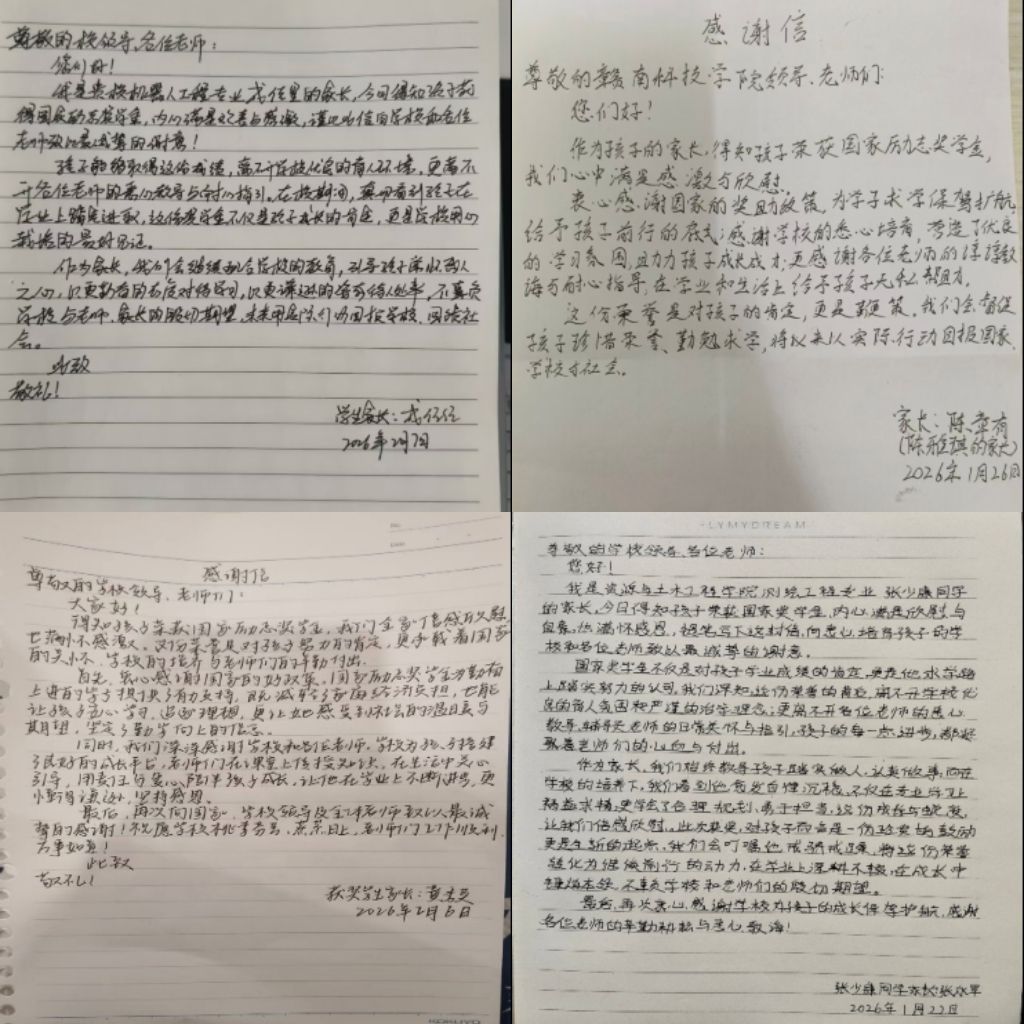 尊敬的校领导、各位老师：
您们好！
我是贵校机器人工程专业 的家长，今日得知孩子获
得国家励志奖学金，内心满是欣喜与感激，谨以此信向学校和各位
老师致以最诚挚的谢意！
孩子能够取得这份成绩，离不开学校优良的育人环境，更离不
开各位老师的悉心教导与耐心指引。在校期间，真切看到孩子在
学业上踏实进取，这份奖学金不仅是孩子成长的肯定，更是学校用心
栽培的最好见证。
作为家长，我们会继续配合学校的教育，引导孩子常怀感恩
之心，以更勤奋的态度对待学习，以更谦逊的姿态待人处事，不辜负
学校与老师、家长的殷切期望，未来用实际行动回报学校、回馈社
会。
此致
敬礼！
学生家长：
2026年2月7日
感谢信
尊敬的赣南科技学院领导、老师们：
您们好！
作为孩子的家长，得知孩子荣获国家励志奖学金，
我们心中满是感激与欣慰。
衷心感谢国家的奖助政策，为学子求学保驾护航，
给予孩子前行的底气；感谢学校的悉心培育，营造了优良
的学习氛围，助力孩子成长成才；更感谢各位老师的谆谆教
诲与耐心指导，在学业和生活上给予孩子无私帮助。
这份荣誉是对孩子的肯定，更是鞭策。我们会督促
孩子珍惜荣誉、勤勉求学，将以来从实际行动回报国家、
学校与社会。
家长：陈章有
（陈雅琪的家长）
2026年1月26日
感谢信
尊敬的学校领导、老师们：
大家好！
得知孩子荣获国家励志奖学金，我们全家倍感欣慰
也满怀感激。这份荣誉是对孩子努力的肯定，更承载着国家
的关怀、学校的培养与老师们的辛勤付出。
首先，衷心感谢国家的好政策。国家励志奖学金为勤奋
上进的学子提供了有力支持，既减轻了家庭经济负担，也能
让孩子安心学习、追逐理想，更让她感受到社会的温暖与
期望，坚定了勤学向上的信念。
同时，我们深深感谢学校和各位老师。学校为孩子搭建
了良好的成长平台，老师们在课堂上传授知识，在生活中关心
引导，用责任与爱心陪伴孩子成长，让他在学业上不断进步，更
懂得谦逊、坚持感恩。
最后，再次向国家、学校领导及全体老师致以最诚
挚的感谢！祝愿学校桃李芬芳，蒸蒸日上，老师们工作顺利、
万事如意！
此致
敬礼！
获奖学生家长：
2026年2月6日
KOKUYO
LYMYDREAM
尊敬的学校领导、各位老师：
您好！
我是资源与土木工程学院测绘工程专业 张少康同学
的家长，今日得知孩子荣获国家奖学金，内心满是欣慰与
自豪，也满怀感恩，提笔写下这封信，向悉心培育孩子的学
校和各位老师致以最诚挚的谢意。
国家奖学金不仅是对孩子学业成绩的肯定，更是他求学路
上踏实努力的认可。我们深知，这份荣誉的背后，离不开学校优
良的育人氛围和严谨的治学理念；更离不开各位老师的悉心
教导，辅导员老师的日常关怀与指引，孩子的每一点进步，都凝
聚着老师们的心血与付出。
作为家长，我们始终教导孩子踏实做人，认真做事，而在
学校的培养下，我们看到他愈发自律沉稳，不仅在专业学习上
精益求精，更学会了合理规划、勇于担当，这份成长与蜕变，
让我们倍感欣慰。此次获奖，对孩子而言是一份珍贵的鼓励
更是全新的起点，我们会叮嘱他戒骄戒躁，将这份荣誉
转化为继续前行的动力，在学业上深耕不辍，在成长中
锤炼本领，不负学校和老师们的殷切期望。
最后，再次衷心感谢学校为孩子的成长保驾护航，感谢
各位老师的辛勤耕耘与悉心教诲！
张少康同学家长：张水军
2026年1月22日